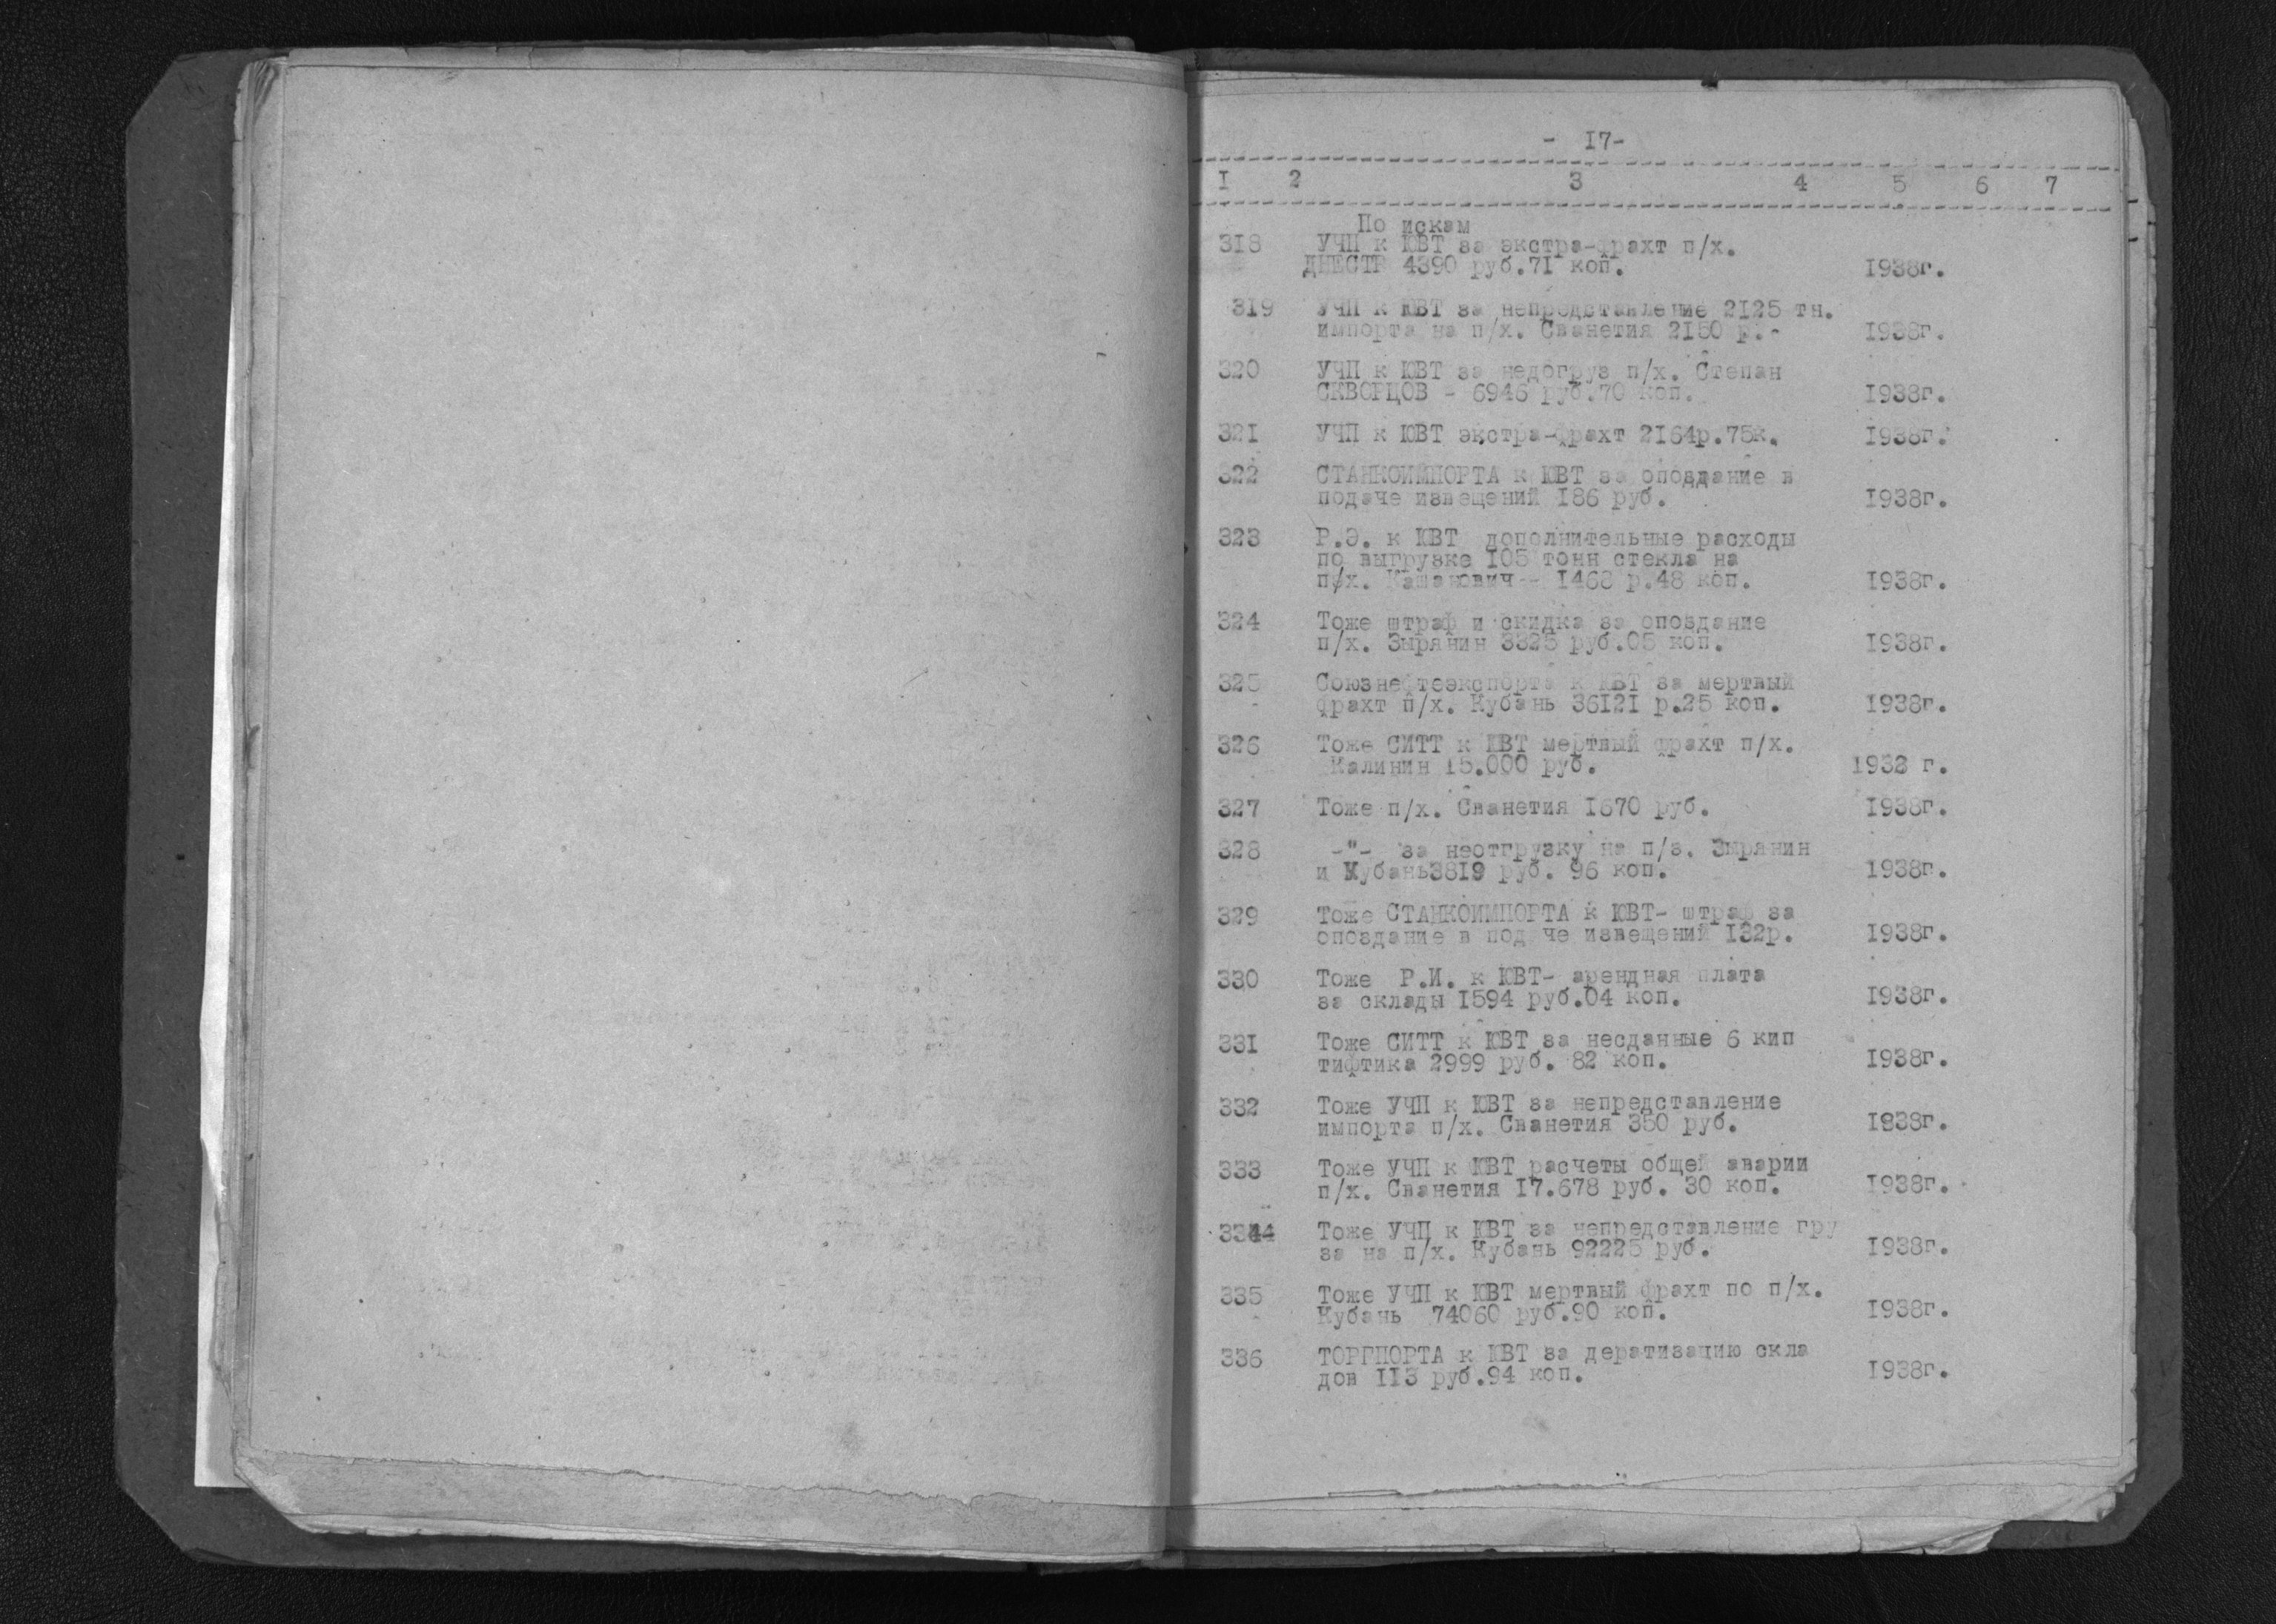 - I7-
I 2 3 4 5 6 7
По искам
318 УЧП к ЮВТ за экстра-фрахт п/х.
ДНЕСТР 4390 руб.7I коп. I938г.
319 УЧП к ЮВТ за непредставление 2I25 тн.
импорта на п/х. Сванетия 2I50 р.- I938г.
320 УЧП к ЮВТ за недогруз п/х. Степан
СКВОРЦОВ - 6946 руб.70 коп. I938г.
32I УЧП к ЮВТ экстра-фрахт 2I64р.75к. I938г.
322 СТАНКОИМПОРТА к ЮВТ за опоздание в
подаче извещений I86 руб. I938г.
323 Р.Э. к ЮВТ дополнительные расходы
по выгрузке I05 тонн стекла на
п/х. - р.48 коп. I938г.
324 Тоже штраф и скидка за опоздание
п/х. Зырянин 3325 руб.05 коп. I938г.
325 Союзнефтеэкспорта к ЮВТ за мертвый
фрахт п/х. Кубань 36I2I р.25 коп. I938г.
326 Тоже СИТТ к ЮВТ мертвый фрахт п/х.
Калинин I5.000 руб. I938 г.
327 Тоже п/х. Сванетия I670 руб. I938г.
328 -"- за неотгрузку на п/з. Зырянин
и Кубань38I9 руб. 96 коп. I938г.
329 Тоже СТАНКОИМПОРТА к ЮВТ- штраф за
опоздание в подаче извещений I32р. I938г.
330 Тоже Р.И. к ЮВТ- арендная плата
за склады I594 руб.04 коп. I938г.
33I Тоже СИТТ к ЮВТ за несданные 6 кип
тифтика 2999 руб. 82 коп. I938г.
332 Тоже УЧП к ЮВТ за непредставление
импорта п/х. Сванетия 350 руб. I938г.
333 Тоже УЧП к ЮВТ расчеты общей аварии
п/х. Сванетия I7.678 руб. 30 коп. I938г.
3344 Тоже УЧП к ЮВТ за непредставление гру
за на п/х. Кубань 92225 руб. I938г.
335 Тоже УЧП к ЮВТ мертвый фрахт по п/х.
Кубань 74060 руб.90 коп. I938г.
336 ТОРГПОРТА к ЮВТ за дератизацию скла
дов II3 руб.94 коп. I938г.